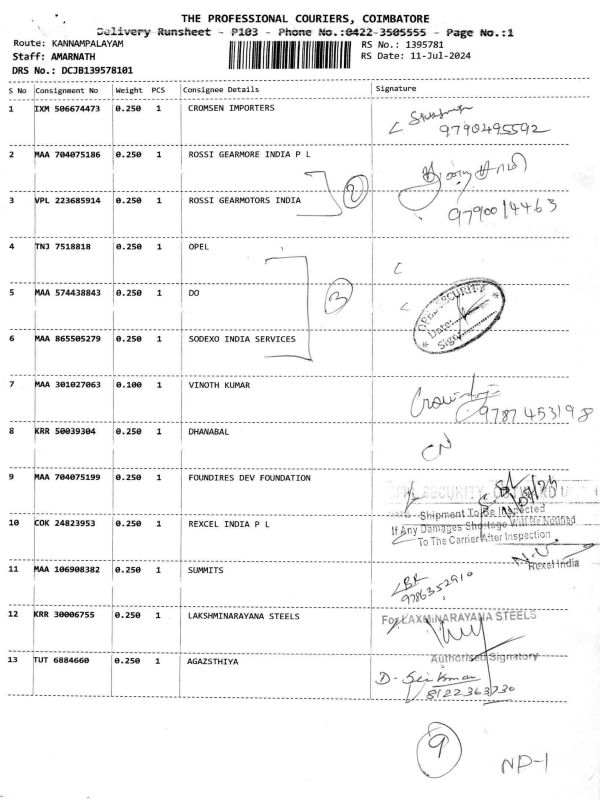 THE PROFESSIONAL COURIERS, COIMBATORE
Delivery Runsheet - P103 - Phone No.:0422-3505555 - Page No.:1
Route: KANNAMPALAYAM
RS No.: 1395781
Staff: AMARNATH
RS Date: 11-Jul-2024
DRS No.: DCJB139578101
S No Consignment No Weight PCS Consignee Details Signature
1 IXM 506674473 0.250 1 CROMSEN IMPORTERS
9790495592
2 MAA 704075186 0.250 1 ROSSI GEARMORE INDIA P L
3 VPL 223685914 0.250 1 ROSSI GEARMOTORS INDIA
2
9790014463
4 TNJ 7518818 0.250 1 OPEL
5 MAA 574438843 0.250 1 DO
3
SECURITY
Date:
Sign
6 MAA 865505279 0.250 1 SODEXO INDIA SERVICES
7 MAA 301027063 0.100 1 VINOTH KUMAR
9787453198
8 KRR 50039304 0.250 1 DHANABAL
CN
9 MAA 704075199 0.250 1 FOUNDIRES DEV FOUNDATION
SECURITY
10 COK 24823953 0.250 1 REXCEL INDIA P L
Shipment To Be Inspected
If Any Damages Shortage Will Be Notified
To The Carrier After Inspection
Rexel India
11 MAA 106908382 0.250 1 SUMMITS
9786352910
12 KRR 30006755 0.250 1 LAKSHMINARAYANA STEELS
For LAXMINARAYANA STEELS
Authorised Signatory
13 TUT 6884660 0.250 1 AGAZSTHIYA
8122363730
9
NP-1